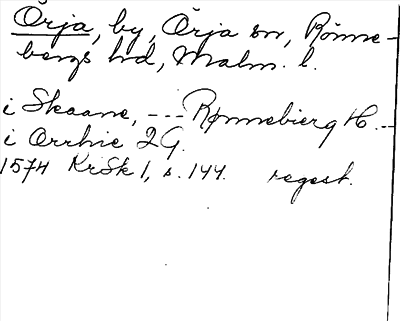 Örja, by, Örja sn, Rönne-
bergs hd, Malm. l.
i Skaane, --- Rønnebierg H. --
i Orrhie 2 G.
1574 KrSk 1, s. 144. regest.